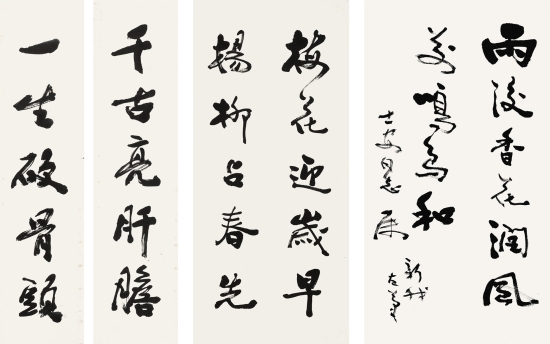 雨後香花潤風
鳴鳥和
士安同志屬
新我左筆
梅花迎歲早
楊柳占春先
千古亮肝膽
一生硬骨頭